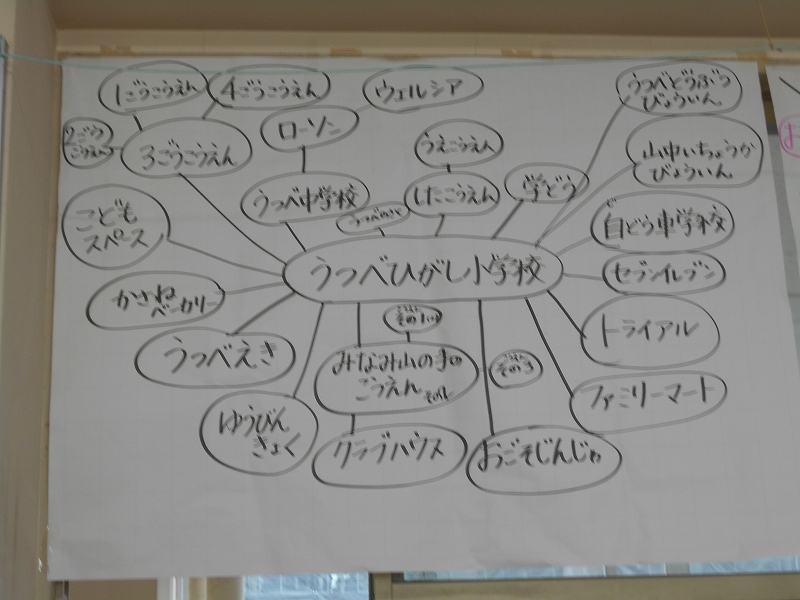 1ごうこうえん
4ごうこうえん
2ごう
こうえん
3ごうこうえん
ローソン
ウェルシア
うえこうえん
うつべどうぶつ
びょういん
山中いちょうか
びょういん
うつべ中学校
したこうえん
学どう
こども
スペース
自どう車学校
うつべひがし小学校
セブンイレブン
かさね
ベーカリー
トライアル
うつべえき
みなみ山の手の
こうえん
その3
ファミリーマート
ゆうびん
きょく
クラブハウス
おごそじんじゃ